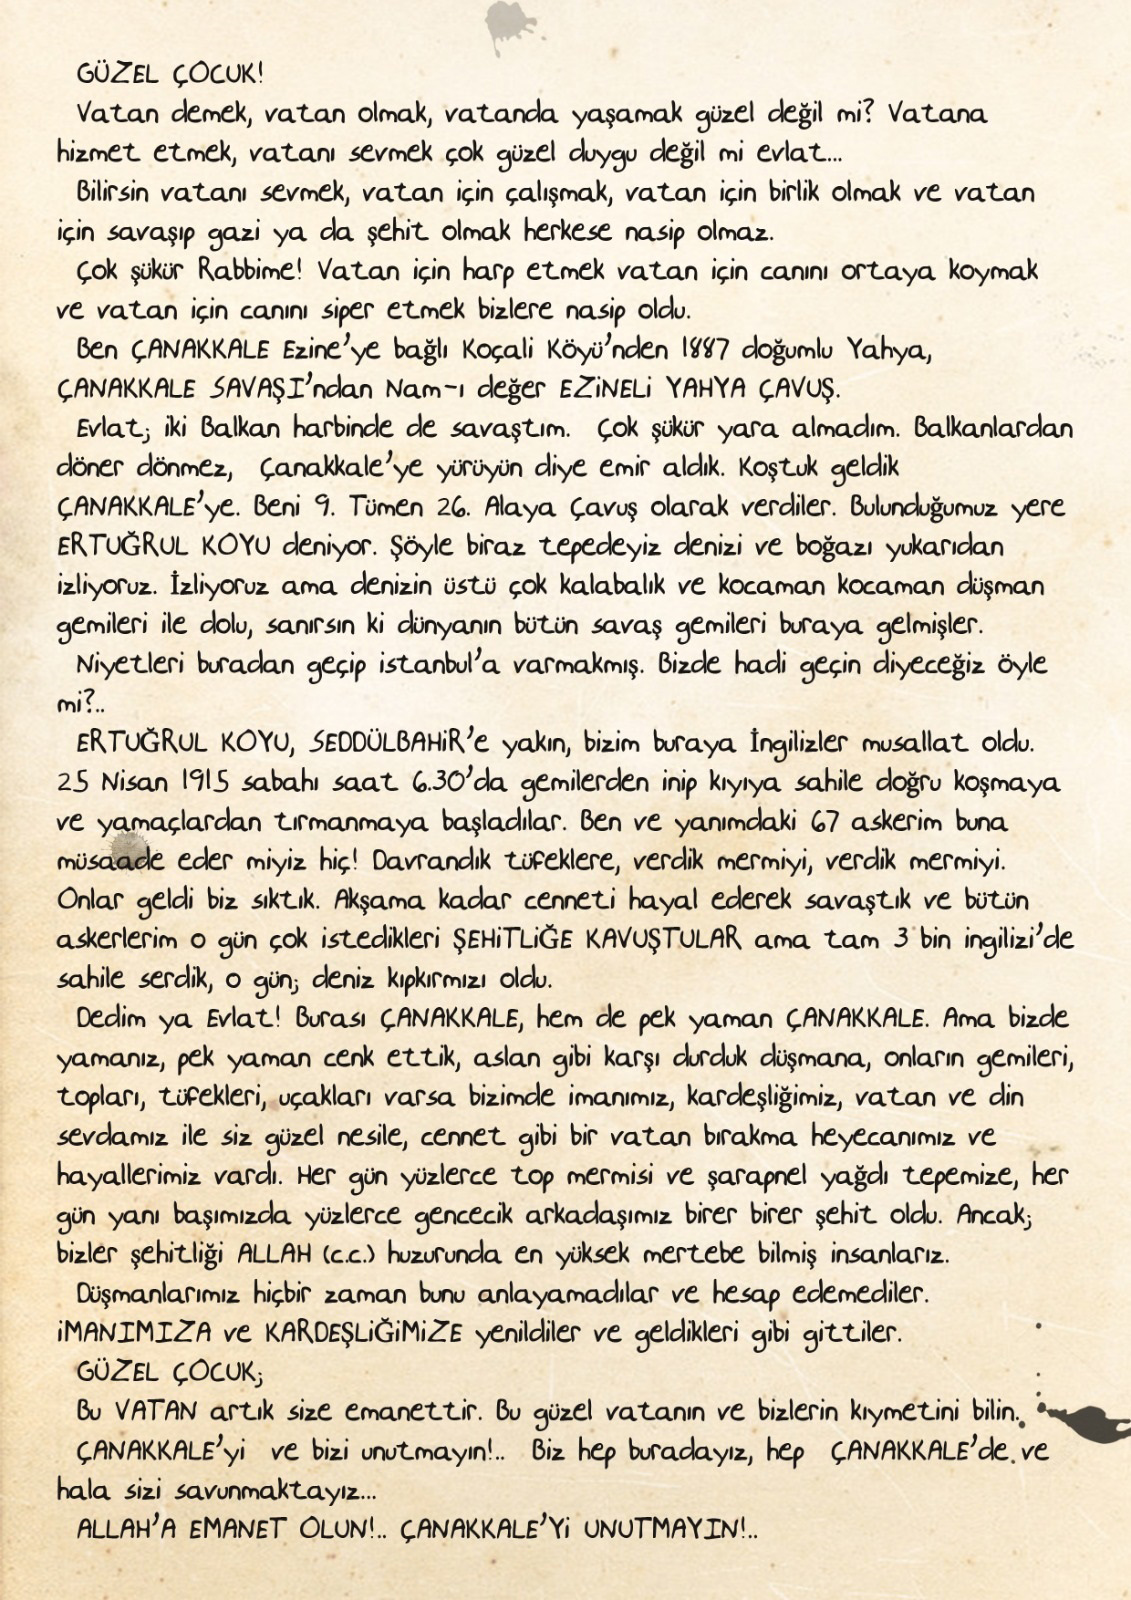 GÜZEL ÇOCUK!
Vatan demek, vatan olmak, vatanda yaşamak güzel değil mi? Vatana
hizmet etmek, vatanı sevmek çok güzel duygu değil mi evlat...
Bilirsin vatanı sevmek, vatan için çalışmak, vatan için birlik olmak ve vatan
için savaşıp gazi ya da şehit olmak herkese nasip olmaz.
Çok şükür Rabbime! Vatan için harp etmek vatan için canını ortaya koymak
ve vatan için canını siper etmek bizlere nasip oldu.
Ben ÇANAKKALE Ezine'ye bağlı Koçali Köyü'nden 1887 doğumlu Yahya,
ÇANAKKALE SAVAŞI'ndan Nam-ı değer EZiNELi YAHYA ÇAVUŞ.
Evlat; iki Balkan harbinde de savaştım. Çok şükür yara almadım. Balkanlardan
döner dönmez, Çanakkale'ye yürüyün diye emir aldık. Koştuk geldik
ÇANAKKALE'ye. Beni 9. Tümen 26. Alaya Çavuş olarak verdiler. Bulunduğumuz yere
ERTUĞRUL KOYU deniyor. Şöyle biraz tepedeyiz denizi ve boğazı yukarıdan
izliyoruz. İzliyoruz ama denizin üstü çok kalabalık ve kocaman kocaman düşman
gemileri ile dolu, sanırsın ki dünyanın bütün savaş gemileri buraya gelmişler.
Niyetleri buradan geçip istanbul'a varmakmış. Bizde hadi geçin diyeceğiz öyle
mi?..
ERTUĞRUL KOYU, SEDDÜLBAHiR'e yakın, bizim buraya İngilizler musallat oldu.
25 Nisan 1915 sabahı saat 6.30'da gemilerden inip kıyıya sahile doğru koşmaya
ve yamaçlardan tırmanmaya başladılar. Ben ve yanımdaki 67 askerim buna
müsaade eder miyiz hiç! Davrandık tüfeklere, verdik mermiyi, verdik mermiyi.
Onlar geldi biz sıktık. Akşama kadar cenneti hayal ederek savaştık ve bütün
askerlerim o gün çok istedikleri ŞEHiTLiĞE KAVUŞTULAR ama tam 3 bin ingilizi'de
sahile serdik, o gün; deniz kıpkırmızı oldu.
Dedim ya Evlat! Burası ÇANAKKALE, hem de pek yaman ÇANAKKALE. Ama bizde
yamanız, pek yaman cenk ettik, aslan gibi karşı durduk düşmana, onların gemileri,
topları, tüfekleri, uçakları varsa bizimde imanımız, kardeşliğimiz, vatan ve din
sevdamız ile siz güzel nesile, cennet gibi bir vatan bırakma heyecanımız ve
hayallerimiz vardı. Her gün yüzlerce top mermisi ve şarapnel yağdı tepemize, her
gün yanı başımızda yüzlerce gencecik arkadaşımız birer birer şehit oldu. Ancak;
bizler şehitliği ALLAH (c.c.) huzurunda en yüksek mertebe bilmiş insanlarız.
Düşmanlarımız hiçbir zaman bunu anlayamadılar ve hesap edemediler.
iMANIMIZA ve KARDEŞLiĞiMiZE yenildiler ve geldikleri gibi gittiler.
GÜZEL ÇOCUK;
Bu VATAN artık size emanettir. Bu güzel vatanın ve bizlerin kıymetini bilin.
ÇANAKKALE'yi ve bizi unutmayın!.. Biz hep buradayız, hep ÇANAKKALE'de ve
hala sizi savunmaktayız...
ALLAH'A EMANET OLUN!.. ÇANAKKALE'Yi UNUTMAYIN!..